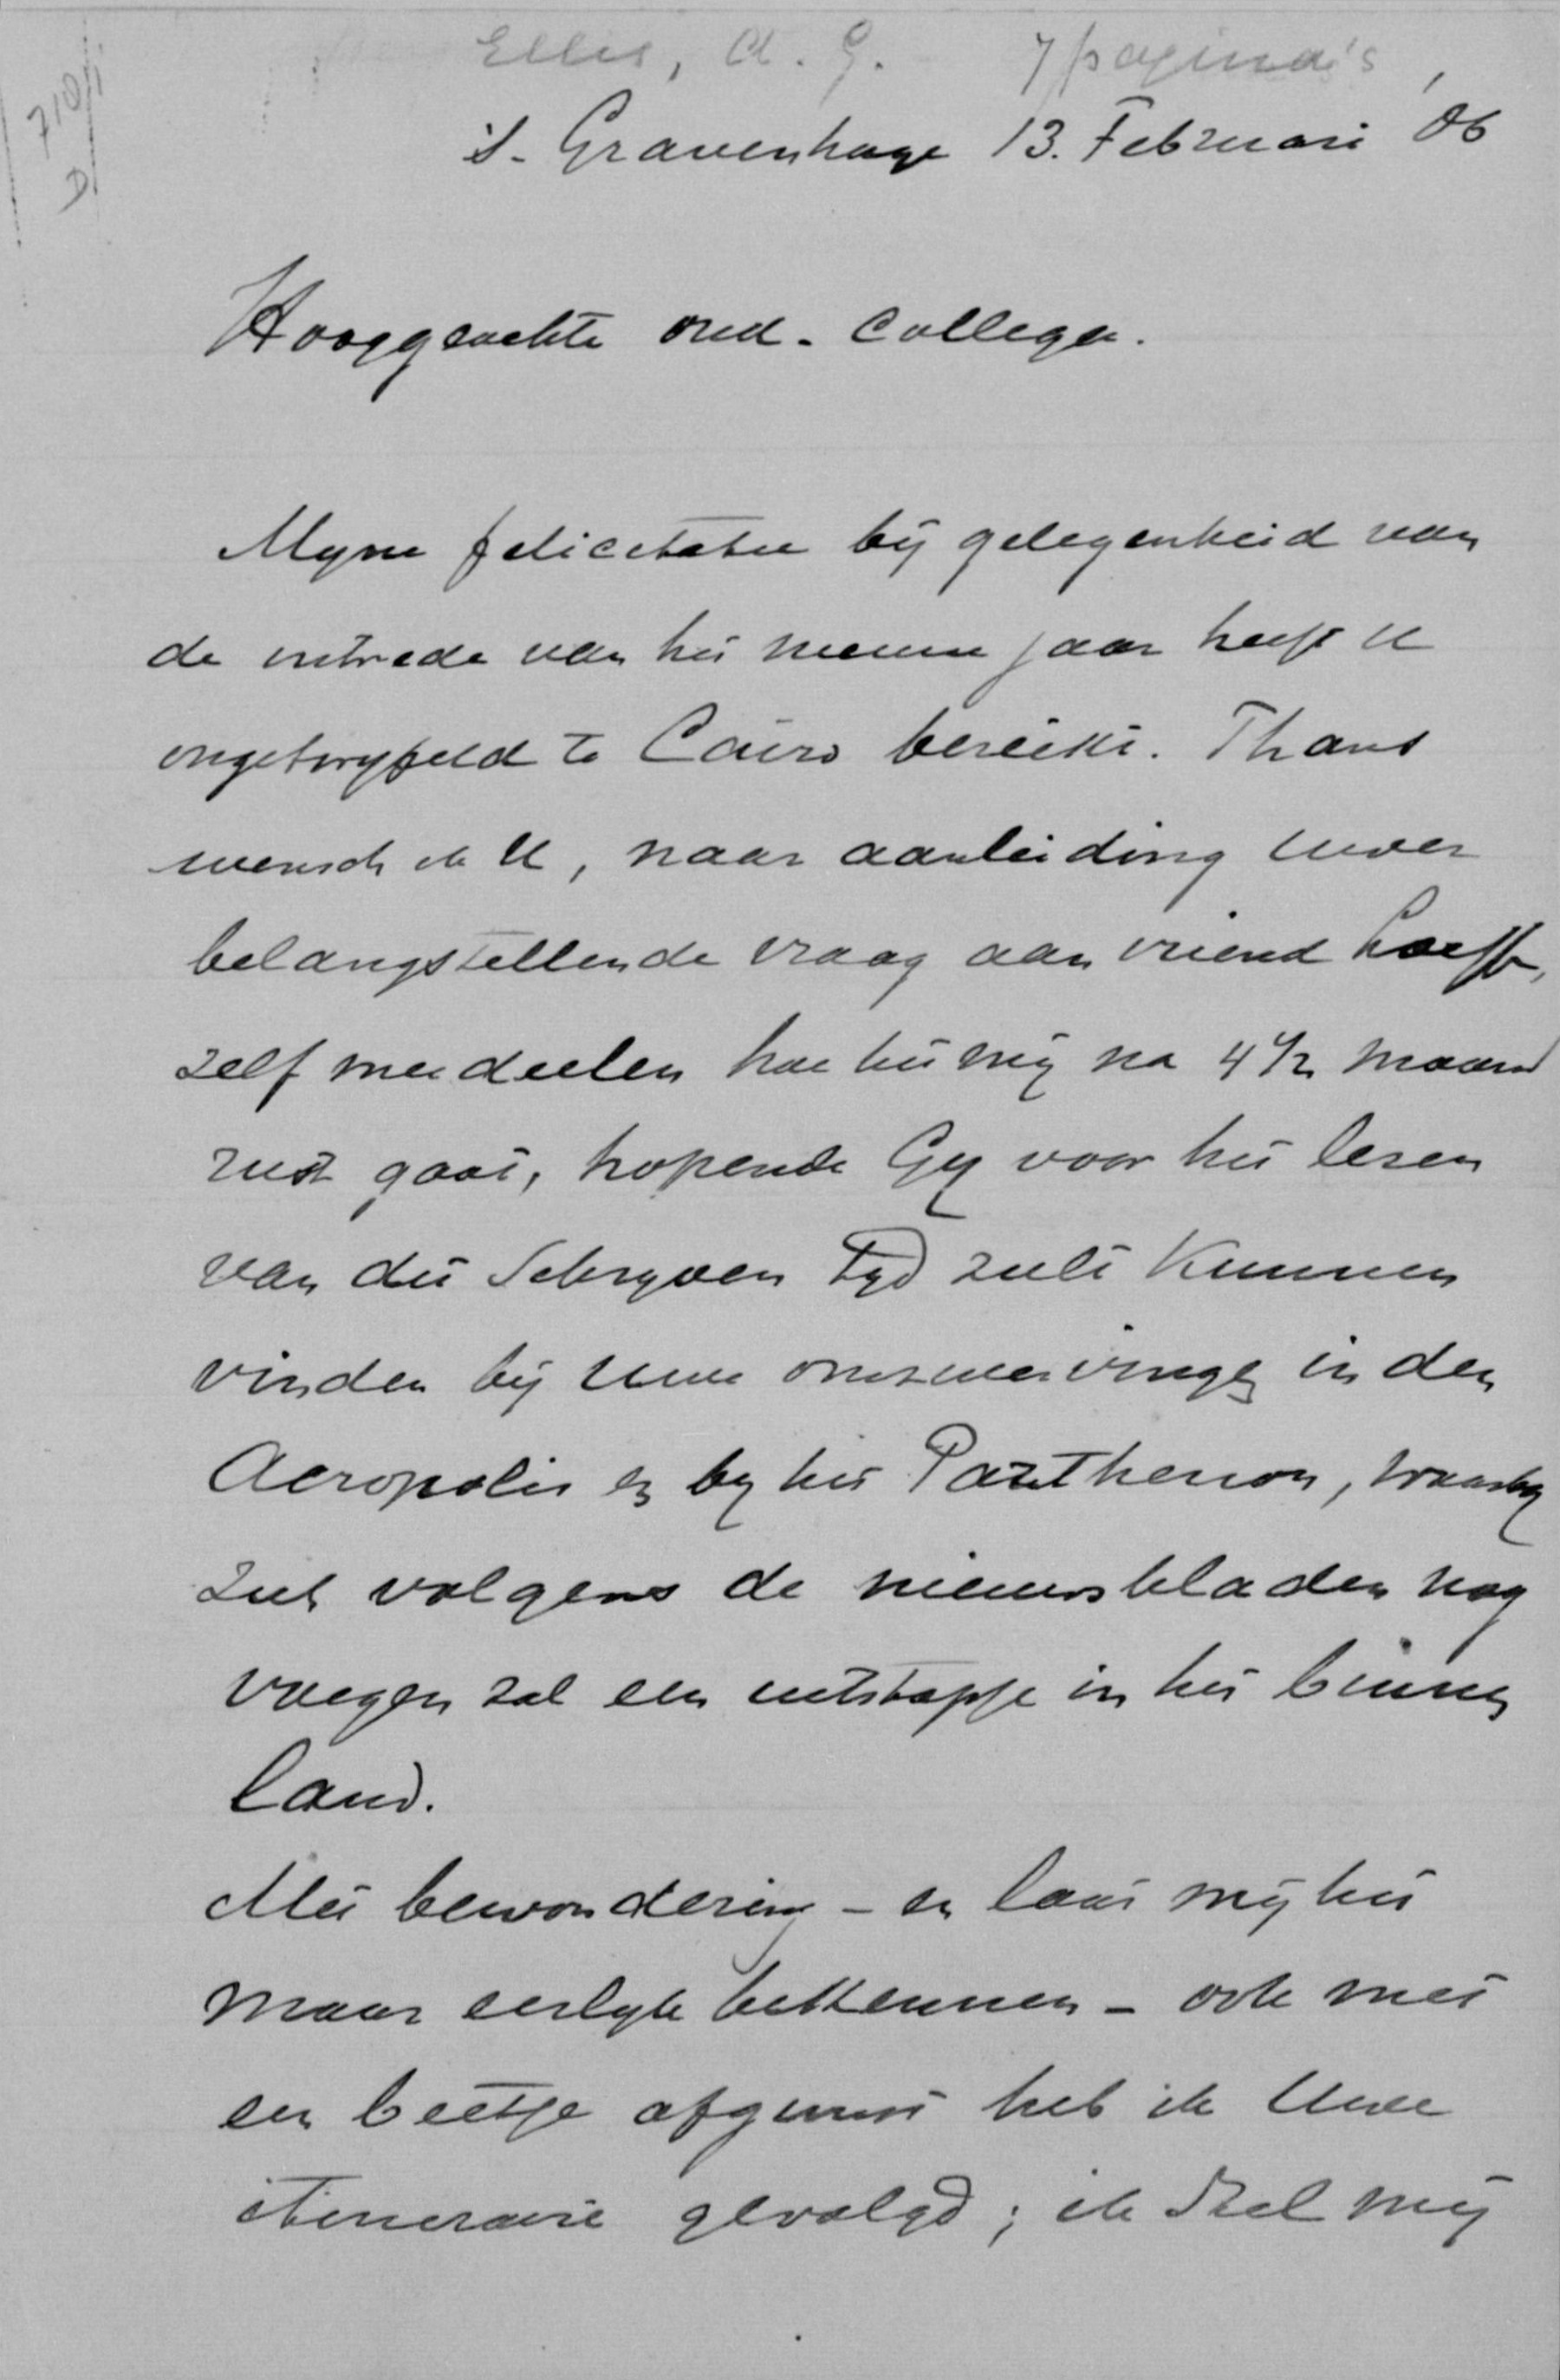 Ellis, A. G. 7 pagina's
710/1
D
's-Gravenhage 13. Februari '06
Hooggeachte oud-collega.
Myne felicitatie bij gelegenheid van
de intrede van het nieuwe jaar heeft U
ongetwyfeld te Caïro bereikt. Thans
wensch ik U, naar aanleiding uwer
belangstellende vraag aan vriend Loeff,
zelf meedeelen hoe het mij na 4 1/2 maand
rust gaat, hopende Gy voor het lezen
van dit schryven tyd zult kunnen
vinden bij uwe omzwervingen in den
Acropolis en by het Parthenon, waarby
zich volgens de nieuwsbladen nog
voegen zal een uitstapje in het binnen
land.
Met bewondering - en laat mij het
maar eerlyk bekennen - ook met
een beetje afgunst heb ik Uwe
itineraire gevolgd; ik stel mij